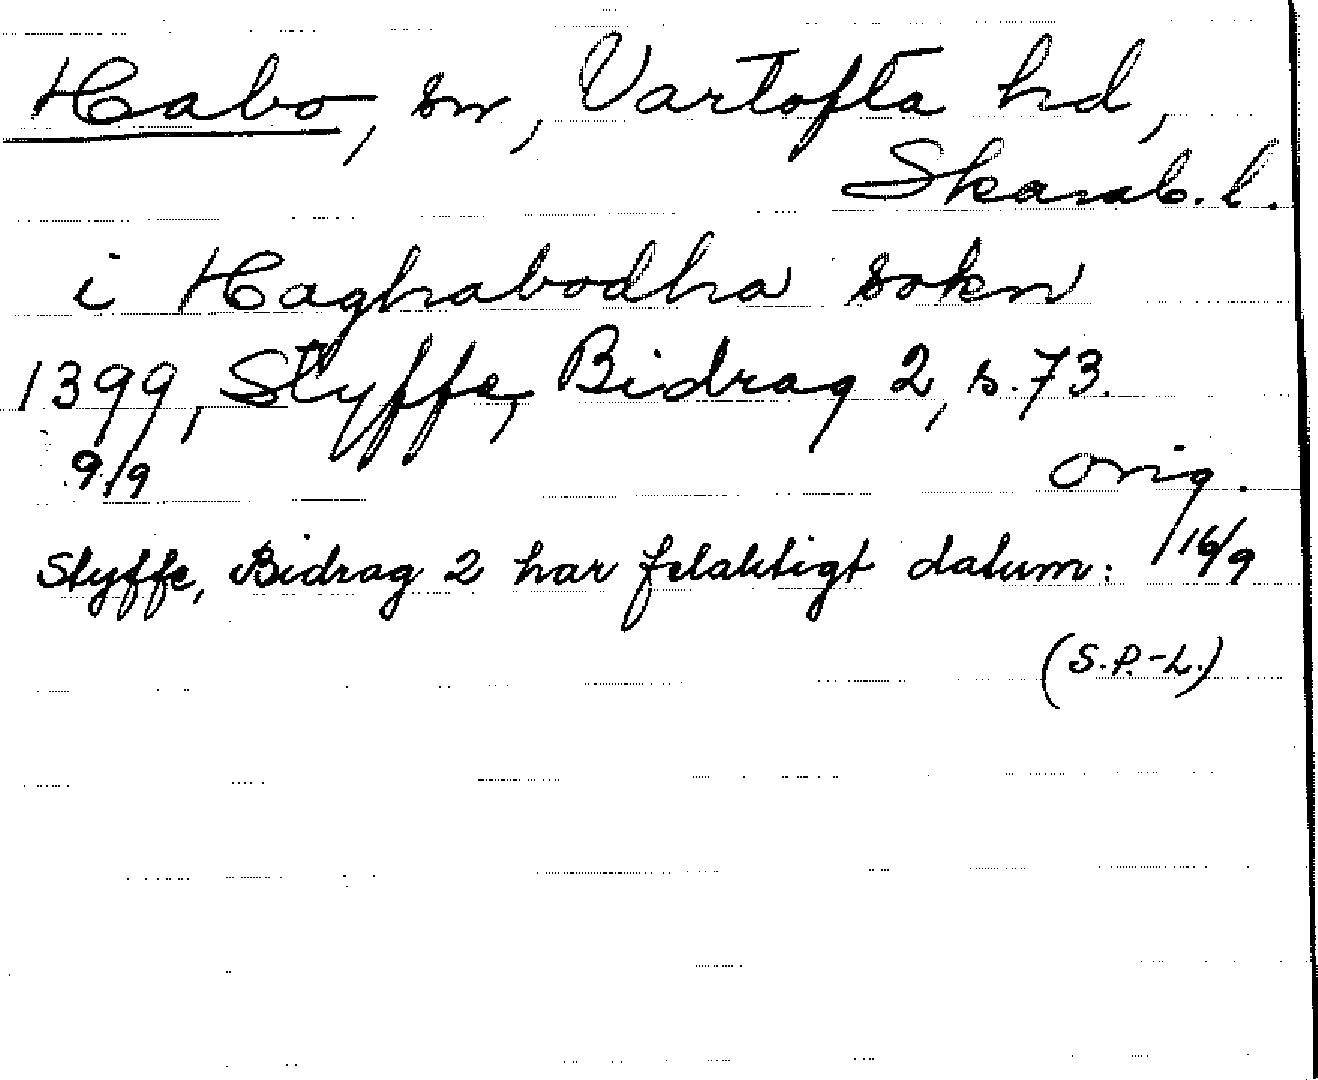 Habo, sn, Vartofta hd,
Skarab. l.
i Haghabodha sokn
1399, Styffe, Bidrag 2, s. 73.
9/9 orig.
Styffe, Bidrag 2 har felaktigt datum: 16/9
(S.P.-L.)